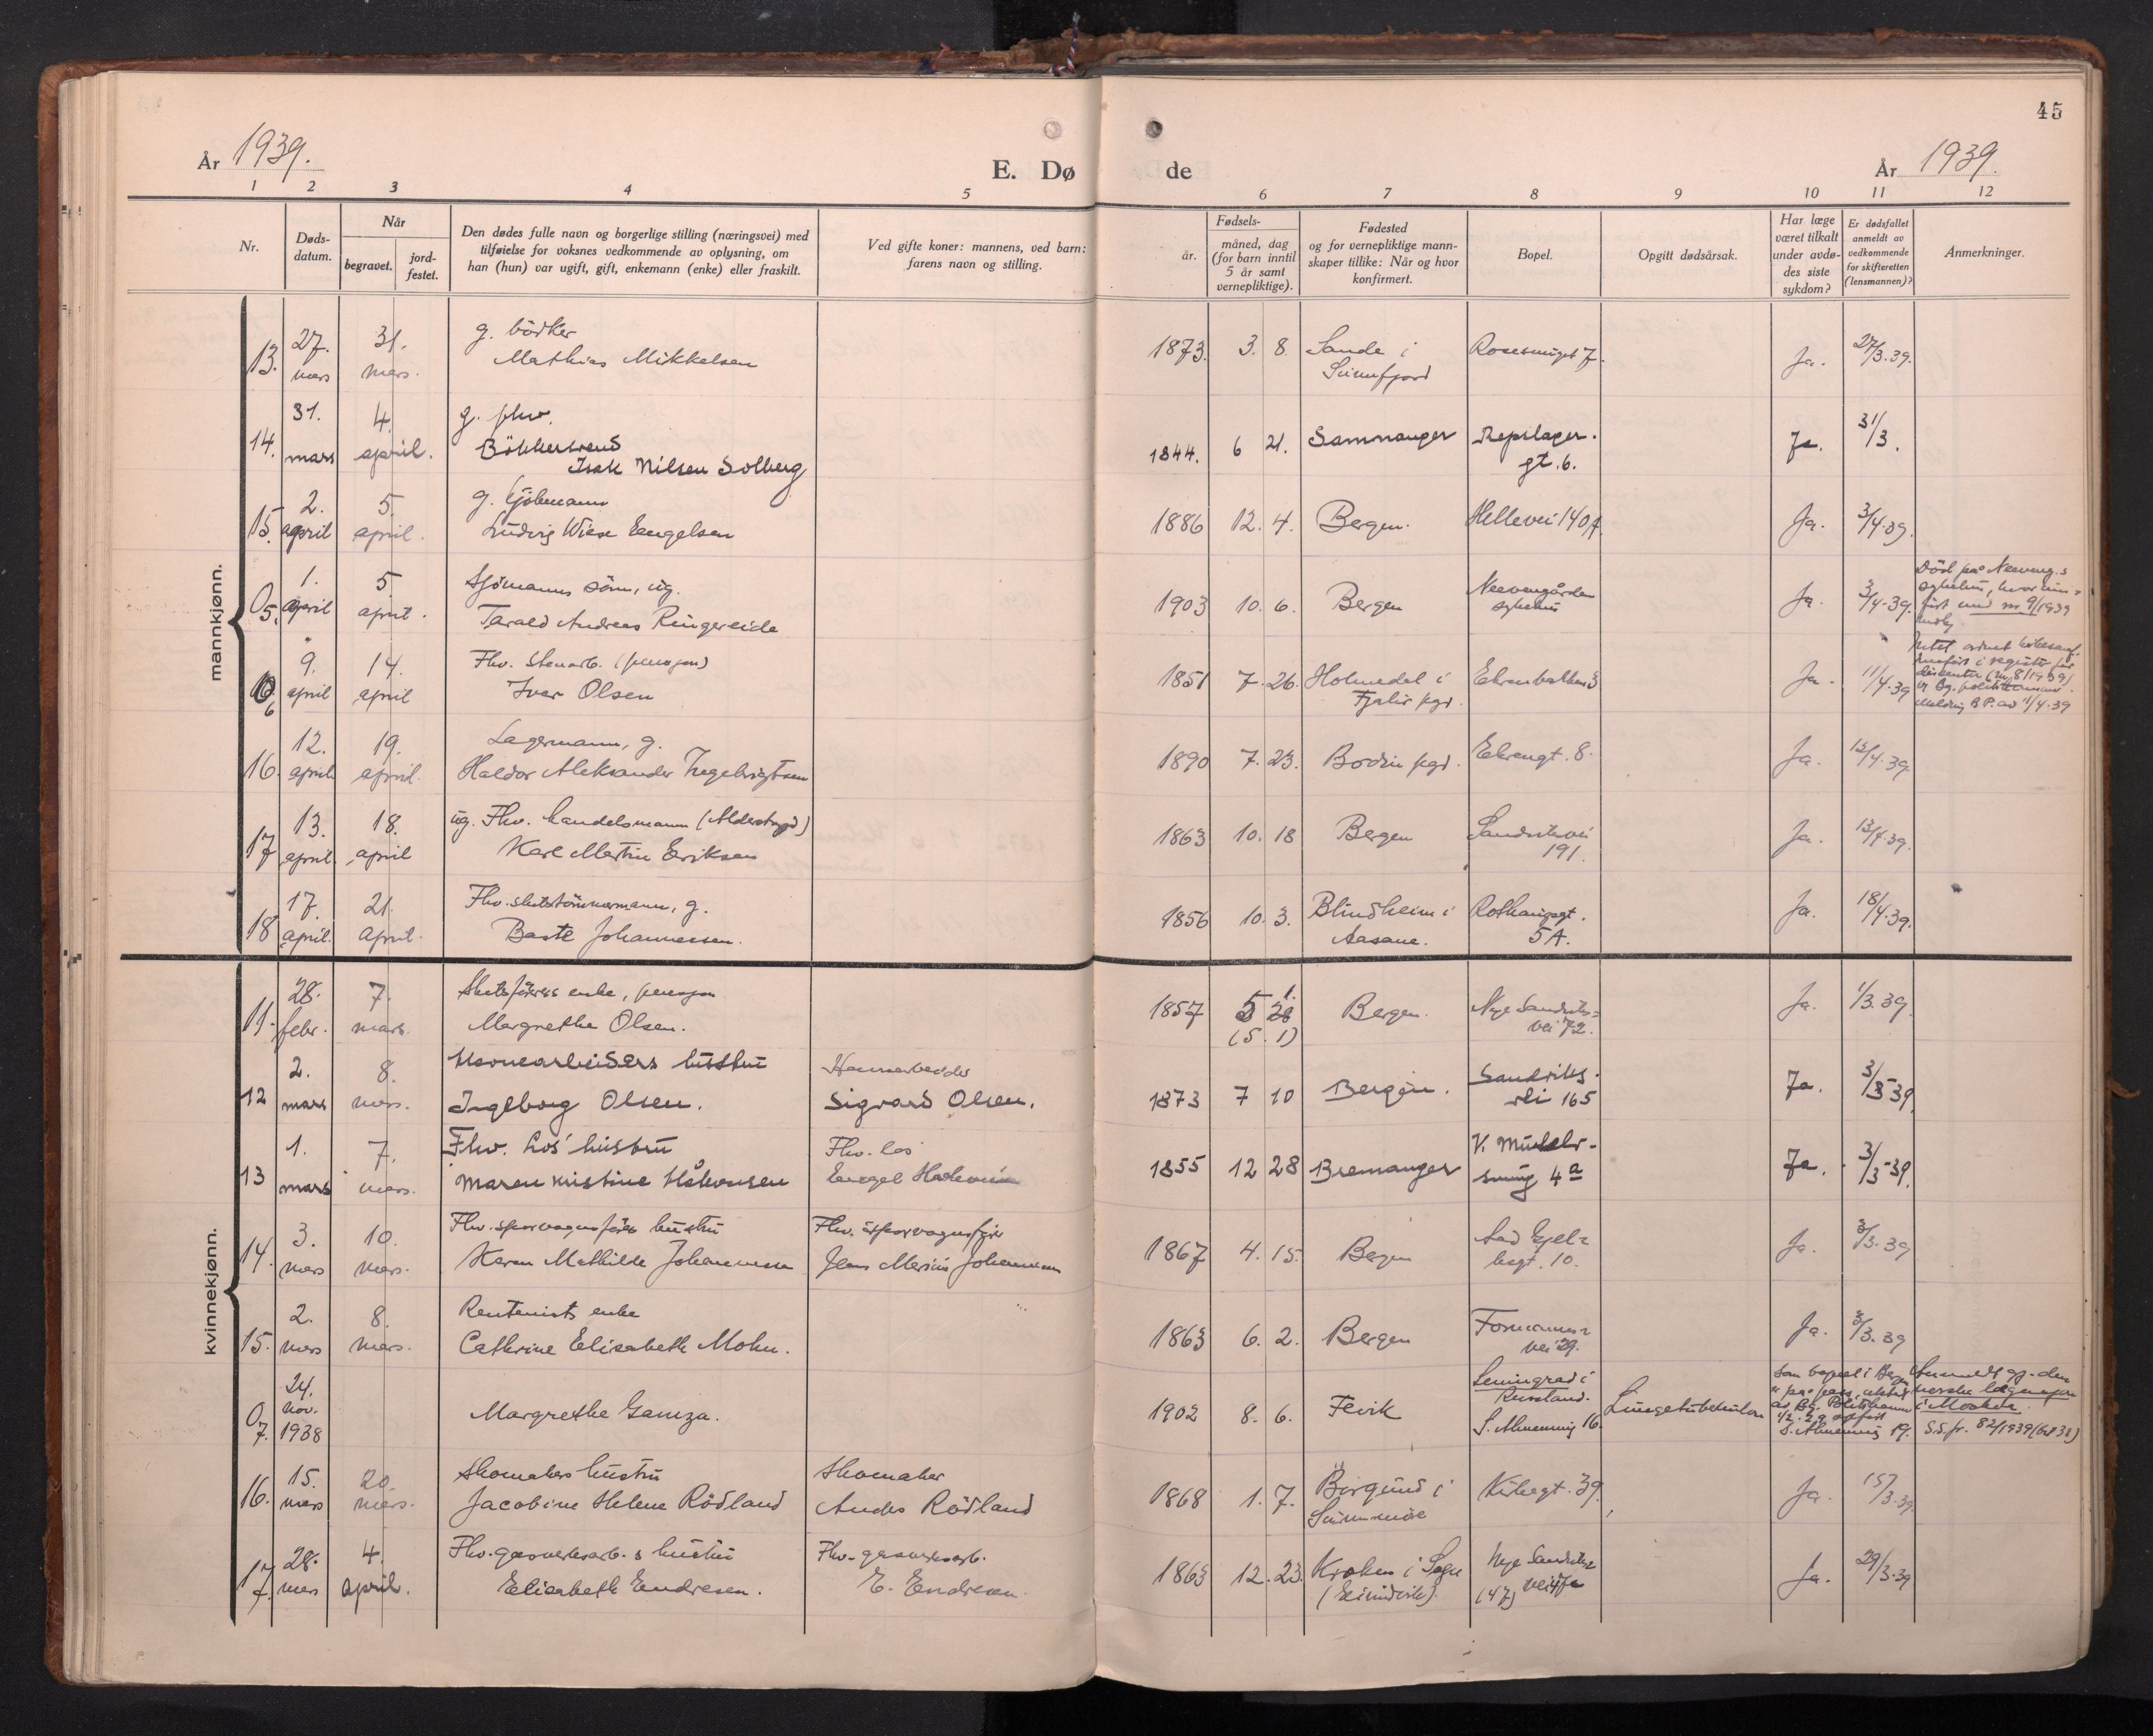 45
År 1939.
E. Dø
de
År 1939.
1 2 3 4 5 6 7 8 9 10 11 12
Nr.
Døds-
datum.
Når
begravet.
jord-
festet.
Den dødes fulle navn og borgerlige stilling (næringsvei) med
tilføielse for voksnes vedkommende av oplysning, om
han (hun) var ugift, gift, enkemann (enke) eller fraskilt.
Ved gifte koner: mannens, ved barn:
farens navn og stilling.
Fødsels-
år.
måned, dag
(for barn inntil
5 år samt
vernepliktige).
Fødested
og for vernepliktige mann-
skaper tillike: Når og hvor
konfirmert.
Bopel.
Opgitt dødsårsak.
Har læge
været tilkalt
under avdø-
des siste
sykdom?
Er dødsfallet
anmeldt av
vedkommende
for skifteretten
(lensmannen)?
Anmerkninger.
mannkjønn.
13. 27. mars 31. mars.
g. bödker
Mathias Mikkelsen
1873. 3. 8. Sande i
Sunnfjord
7. Ja. 27/3.39.
14. 31. mars 4. april.
g. fhv.
Isak Nilsen Solberg
1844. 6 21. Samnanger Repslager.
gt. 6. Ja. 31/3.
15. 2. april 5. april.
g.
Ludvig Wiese Engelsen
1886 12. 4. Bergen. Hellevei 140A. Ja. 3/4.39.
0 5. 1. april 5 april.
Sjömanns sönn, ug.
Tarald Andreas Ringereide
1903 10. 6. Bergen Neevengården
sykehus Ja. 3/4.39.
Död på Neeveng.s
sykehus, hvor inn-
fört und nr 9/1939
0 6 9. april 14. april
Fhv. Stenarb. (pensjon)
Iver Olsen
1851 7. 26. Holmedal i
Fjaler pgd. Ja. 11/4.39
i register for
dissenter (nr 8/1939)
Melding B.P. av 11/4.39
16. 12. april 19. april.
Lagermann, g.
Haldor Aleksander Ingebrigtsen
1890 7. 23. Bodin pgd. Ekrengt. 8. Ja. 13/4.39
17 13. april 18. april
ug. Fhv. handelsmann (Alderstrygd)
Karl Martin Eriksen
1863 10. 18 Bergen Sandviksvei
191. Ja. 13/4.39.
18 17. april. 21. april.
Fhv. skibstömmermann, g.
Baste Johannessen.
1856 10. 3. Blindheim i
Aasane. Rothaugsgt.
5A. Ja. 18/4.39.
kvinnekjønn.
11. 28. febr. 7. mars.
Skibsförers enke, pensjon
Margrethe Olsen.
1857 5 28 1.
(5. 1) Bergen. Nye Sandviks-
vei 72. Ja. 1/3.39.
12 2. mars 8. mars.
Havnearbeiders hustru
Ingeborg Olsen.
Havnearbeider
Sigvard Olsen.
1873 7 10 Bergen. Sandviks-
vei 165 Ja. 3/3-39.
13 1. mars 7. mars.
Fhv. Los' hustru
Maren Kristine Håkonsen
Fhv. los
1855 12 28 Bremanger V. Murals-
smug 4a Ja. 3/3-39.
14. 3. mars 10. mars.
Fhv. sporvognsförers hustru
Karen Mathilde Johannessen
Fhv. sporvognsförer
Jens Marius Johannessen
1867 4. 15. Bergen Aad Gjel-
lesgt. 10. Ja. 3/3.39
15. 2. mars 8. mars.
Rentenists enke
Cathrine Elisabeth Mohn.
1863 6. 2. Bergen Formanns-
vei 29. Ja. 3/3.39
0 7. 24. nov. 1938
Margrethe Gamza.
1902 8. 6. Fevik Leningrad i
Russland.
S. Almenning 16. Lungetuberkulose
Som bopel i Bergen
er på pass, utstedt
av Bg. Politikammer
S. Almenning 19.
Anmeldt gj. den
norske legasjon
i Moskva.
S.S. jr. 82/1939
16. 15. mars 20. mars.
Skomakers hustru
Jacobine Helene Rödland
Skomaker
Anders Rödland
1868 1. 7. Borgund i
Sunnmöre Kirkegt. 39. Ja. 15/3.39
17. 28. mars 4. april.
Fhv. gassverksarb.s hustru
Elisabeth Endresen.
Fhv. gassverksarb.
E. Endresen
1863 12. 23. Kroken i Sogn
(Eivindvik). Nye Sandviks-
(47) vei Ja. 29/3.39